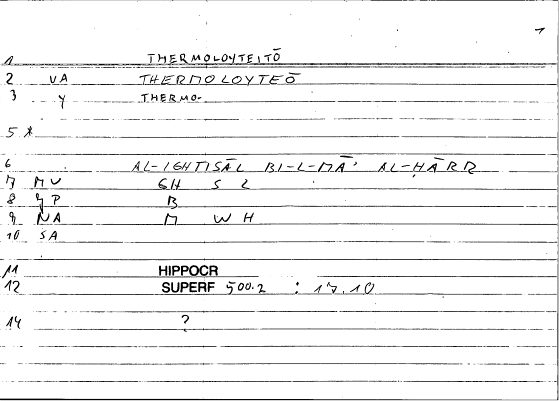 1
1 THERMOLOYTEITŌ
2 VA THERMOLOYTEŌ
3 Y THERMO-
5 *
6 AL-IGHTISĀL BI-L-MĀʾ AL-ḤĀRR
7 MV GH S L
8 GP B
9 NA M W H
10 SA
11 HIPPOCR
12 SUPERF 500.2 : 17.10
14 ?